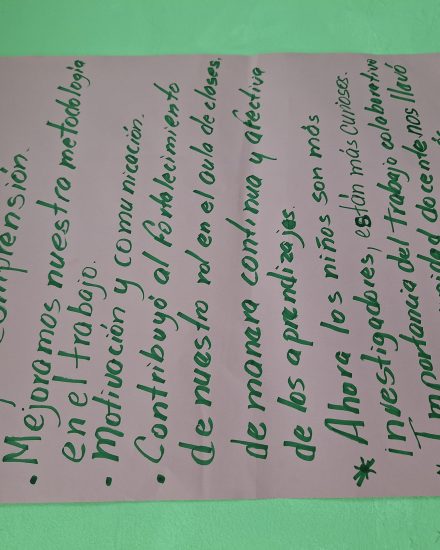 comprensión.
• Mejoramos nuestra metodología
en el trabajo.
• Motivación y comunicación.
• Contribuyó al fortalecimiento
de nuestro rol en el aula de clases,
de manera continua y afectiva
de los aprendizajes.
* Ahora los niños son más
investigadores, están más curiosos.
Importancia del trabajo colaborativo
docente nos llevó